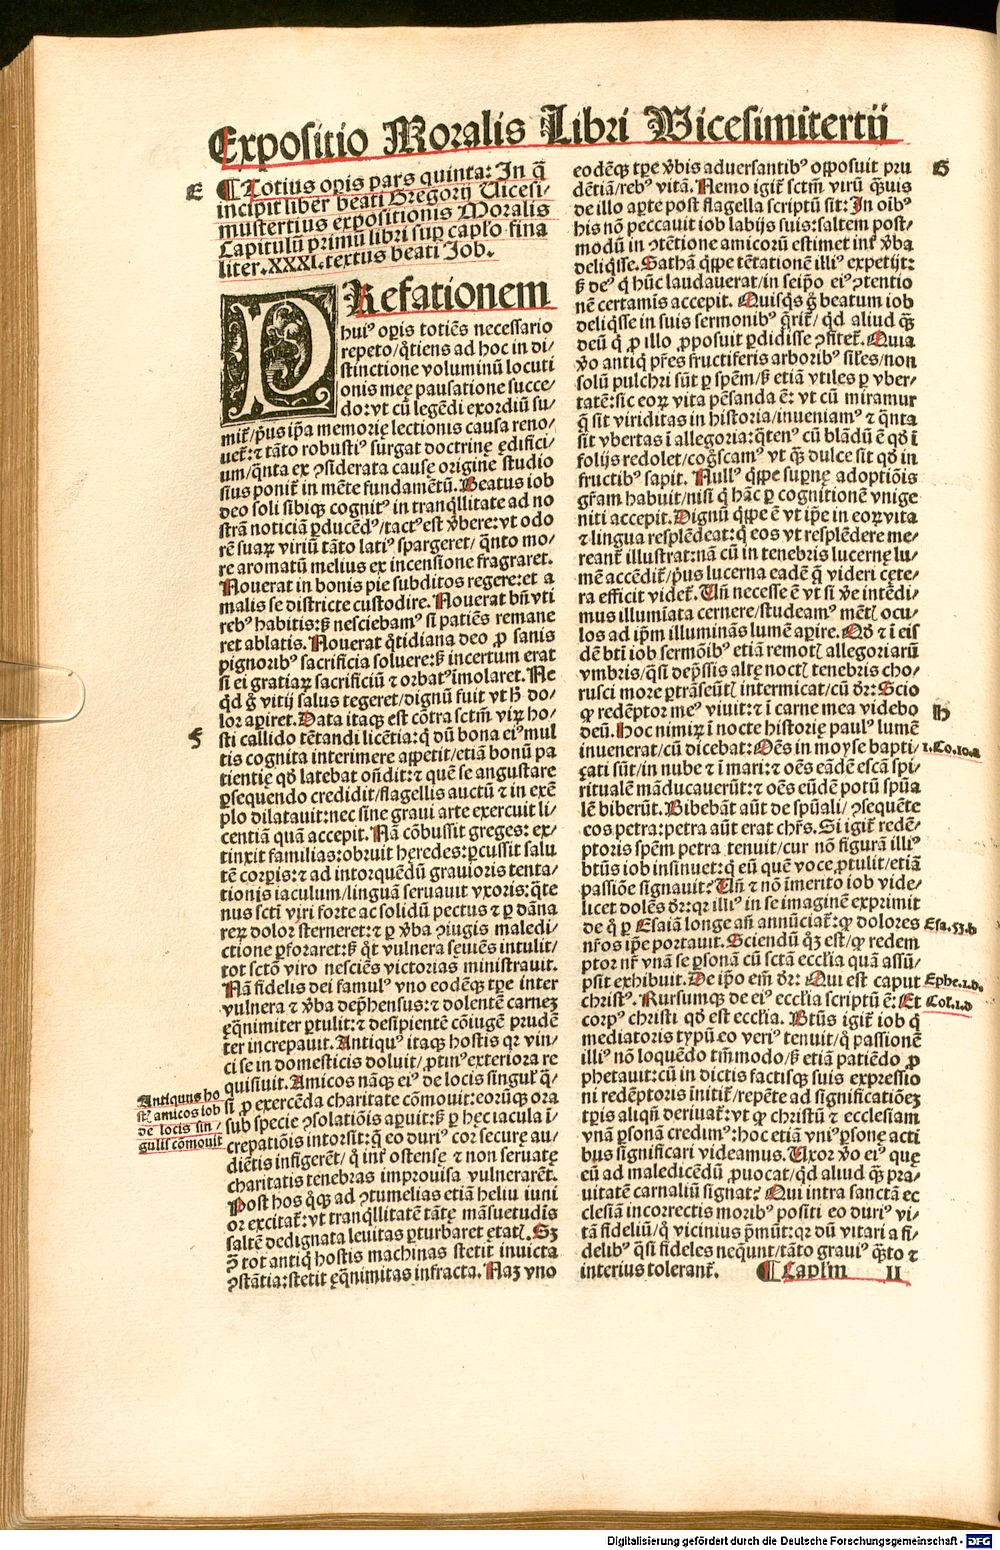 Expositio Moralis Libri Vicesimitertij
E
¶ Totius opis pars quinta: In q̃
incipit liber beati Gregorij Uicesi-
mustertius expositionis Moralis
Capitulũ primũ libri sup caplo fina
liter.XXXI.textus beati Job.
PRefationem
huiꝰ opis totiẽs necessario
repeto/q̃tiens ad hoc in di/
stinctione voluminũ locuti
onis meę pausatione succe-
do:vt cũ legẽdi exordiũ su/
mit̃/p̃us ip̃a memorię lectionis causa reno/
uet̃:⁊ tãto robustiꝰ surgat doctrinę ędifici/
um/q̃nta ex ꝯsiderata cause origine studio
sius ponit̃ in mẽte fundamẽtũ. Beatus iob
deo soli sibiqꝫ cognitꝰ in tranq̃llitate ad no
strã noticiã ꝑducẽdꝰ/tactꝰ est v̾bere:vt odo
rẽ suaꝝ viriũ tãto latiꝰ spargeret/ q̃nto mo/
re aromatũ melius ex incensione fragraret.
Nouerat in bonis pie subditos regere:et a
malis se districte custodire. Nouerat bñ vti
rebꝰ habitis:ß nesciebamꝰ si patiẽs remane
ret ablatis. Nouerat q̃tidiana deo ꝓ sanis
pignoribꝰ sacrificia soluere:ß incertum erat
si ei gratiaꝝ sacrificiũ ⁊ orbatꝰ ĩmolaret. Ne
q̃d g̃ vitij salus tegeret/dignũ fuit vt h̃ do/
lor aꝑiret. Data itaqꝫ est cõtra sctm̃ viꝝ ho/
F
sti callido tẽtandi licẽtia:q̃ dũ bona eiꝰ mul
tis cognita interimere appetit/etiã bonũ pa
tientię qd̾ latebat on̄dit:⁊ quẽ se angustare
ꝑsequendo credidit/flagellis auctũ ⁊ in exẽ
plo dilatauit:nec sine graui arte exercuit li/
centiã quã accepit. Nã cõbussit greges: ex/
tinxit familias:obruit hęredes:ꝑcussit salu
tẽ corꝑis:⁊ ad intorquẽdũ grauioris tenta/
tionis iaculum/linguã seruauit vxoris:q̃te
nus scti viri forte ac solidũ pectus ⁊ ꝑ dãna
reꝝ dolor sterneret:⁊ ꝑ v̾ba ꝯiugis maledi/
ctione ꝑforaret:ß q̃t vulnera sęuiẽs intulit/
tot sctõ viro nesciẽs victorias ministrauit.
Nã fidelis dei famulꝰ vno eodẽqꝫ tꝑe inter
vulnera ⁊ v̾ba dep̃hensus:⁊ dolentẽ carneꝫ
ęq̃nimiter ꝑtulit:⁊ desipientẽ cõiugẽ prudẽ
ter increpauit. Antiquꝰ itaqꝫ hostis qꝛ vin/
ci se in domesticis doluit/ꝓtinꝰ exteriora re
quisiuit. Amicos nãqꝫ eiꝰ de locis singul̃ q̃/
Antiquus ho
stis̃ amicos iob
de locis sin/
gulis cõmouit
si ꝓ exercẽda charitate cõmouit:eorũqꝫ ora
sub specie ꝯsolatiõis aꝑuit:ß ꝑ hęc iacula ĩ/
crepatiõis intorsit:q̃ eo duriꝰ cor secure au/
diẽtis infigerẽt/ q̃ int̃ ostense ⁊ non seruatę
charitatis tenebras improuisa vulnerarẽt.
Post hos q̃qꝫ ad ꝯtumelias etiã heliu iuni
or excitat̃:vt tranq̃llitatẽ tãtę mãsuetudis
saltẽ dedignata leuitas ꝑturbaret ętatꝭ. Sꝫ
ꝯ̃ tot antiq̃ hostis machinas stetit inuicta
ꝯstãtia:stetit ęq̃nimitas infracta. Naꝫ vno
G
eodẽqꝫ tꝑe v̾bis aduersantibꝰ opposuit pru
dẽtiã/rebꝰ vitã. Nemo igit̃ sctm̃ virũ q̃uis
de illo aꝑte post flagella scriptũ sit:In oĩbꝰ
his nõ peccauit iob labijs suis:saltem post-
modũ in ꝯtẽtione amicorũ estimet int̃ v̾ba
deliq̃sse. Sathã q̃ppe tẽtationẽ illiꝰ expetijt:
ß deꝰ q̃ hũc laudauerat/in seip̃o eiꝰ ꝯtentio
nẽ certamis accepit. Quisq̃s g̃ beatum iob
deliq̃sse in suis sermonibꝰ q̃rit̃/ q̃d aliud q̃ꝫ
deũ q̃ ꝓ illo ꝓposuit ꝑdidisse ꝯfitet̃. Quia
v̾o antiq̃ pr̃es fructiferis arboribꝰ sil̃es/non
solũ pulchri sũt ꝑ spẽm/ß etiã vtiles ꝑ vber-
tatẽ:sic eoꝝ vita pẽsanda ẽ: vt cũ miramur
q̃ sit viriditas in historia/inueniamꝰ ⁊ q̃nta
sit vbertas ĩ allegoria:q̃tenꝰ cũ blãdũ ẽ qd̾ ĩ
folijs redolet/cog̃scamꝰ vt q̃ꝫ dulce sit qd̾ in
fructibꝰ sapit. Nullꝰ q̃ppe supnę adoptiõis
gr̃am habuit/nisi q̃ hãc ꝑ cognitionẽ vnige
niti accepit. Dignũ q̃ppe ẽ vt ip̃e in eoꝝ vita
⁊ lingua resplẽdeat:q̃ eos vt resplẽdere me-
reant̃ illustrat:nã cũ in tenebris lucernę lu-
mẽ accẽdit̃/p̃us lucerna eadẽ q̃ videri cęte-
ra efficit videt̃. Uñ necesse ẽ vt si v̾e intẽdi-
mus illumĩata cernere/studeamꝰ mẽtꝭ ocu-
los ad ip̃m illuminãs lumẽ aꝑire. Qd̾ ⁊ ĩ eis
dẽ bti iob sermõibꝰ etiã remotꝭ allegoriarũ
vmbris/q̃si dep̃ssis altę noctꝭ tenebris cho-
rusci more ꝑtrãseũtꝭ intermicat/cũ dr̃:Scio
H
ꝙ redẽptor meꝰ viuit:⁊ ĩ carne mea videbo
deũ. Hoc nimiꝝ ĩ nocte historię paulꝰ lumẽ
inuenerat/cũ dicebat: Oẽs in moyse bapti/
1.Co.10.a
ʒati sũt/in nube ⁊ ĩ mari:⁊ oẽs eãdẽ escã spi/
ritualẽ mãducauerũt:⁊ oẽs eũdẽ potũ spũa
lẽ biberũt. Bibebãt aũt de spũali/ ꝯsequẽte
eos petra:petra aũt erat chr̃s. Si igit̃ redẽ/
ptoris spẽm petra tenuit/cur nõ figurã illiꝰ
btũs iob insinuet:q̃ eũ quẽ voce ꝓtulit/etiã
passiõe signauit? Uñ ⁊ nõ ĩmerito iob vide/
licet dolẽs dr̃:qꝛ illiꝰ in se imaginẽ exprimit
de q̃ ꝑ Esaiã longe añ annũciat̃:ꝙ dolores
Esa.53.b
nr̃os ip̃e portauit. Sciendũ q̃ꝫ est/ꝙ redem
ptor nr̃ vnã se ꝑsonã cũ sctã eccl̃ia quã assũ/
psit exhibuit. De ip̃o em̃ dr̃: Qui est caput
Ephe.1.d.
christꝰ. Rursumqꝫ de eiꝰ eccl̃ia scriptũ ẽ: Et
Col̃.1.d
corpꝰ christi qd̾ est eccl̃ia. Btũs igit̃ iob q̃
mediatoris typũ eo veriꝰ tenuit/q̃ passionẽ
illiꝰ nõ loquẽdo tm̃modo/ß etiã patiẽdo ꝓ
phetauit:cũ in dictis factisqꝫ suis expressio
ni redẽptoris inĩtit̃/repẽte ad significatiõeꝫ
tꝑis aliq̃n deriuat̃:vt ꝙ christũ ⁊ ecclesiam
vnã ꝑsonã credimꝰ:hoc etiã vniꝰ ꝑsonę acti
bus significari videamus. Uxor v̾o eiꝰ quę
eũ ad maledicẽdũ ꝓuocat/q̃d aliud q̃ꝫ pra/
uitatẽ carnaliũ signat? Qui intra sanctã ec
clesiã incorrectis moribꝰ positi eo duriꝰ vi/
tã fideliũ/q̃ vicinius p̃mũt:qꝛ dũ vitari a fi/
delibꝰ q̃si fideles neq̃unt/tãto grauiꝰ q̃ꝫto ⁊
interius tolerant̃. ¶ Capl̃m II
Digitalisierung gefördert durch die Deutsche Forschungsgemeinschaft - DFG